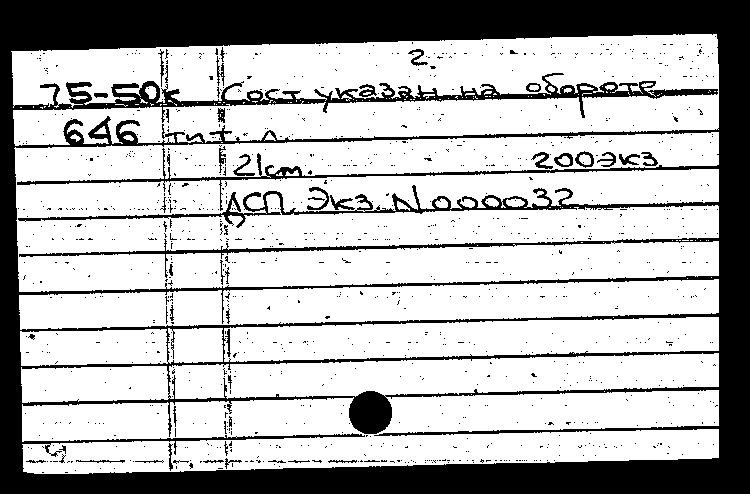 2.
75-50к Сост указан на обороте
646 тит. л.
21см. 200экз.
ДСП. Экз. N000032